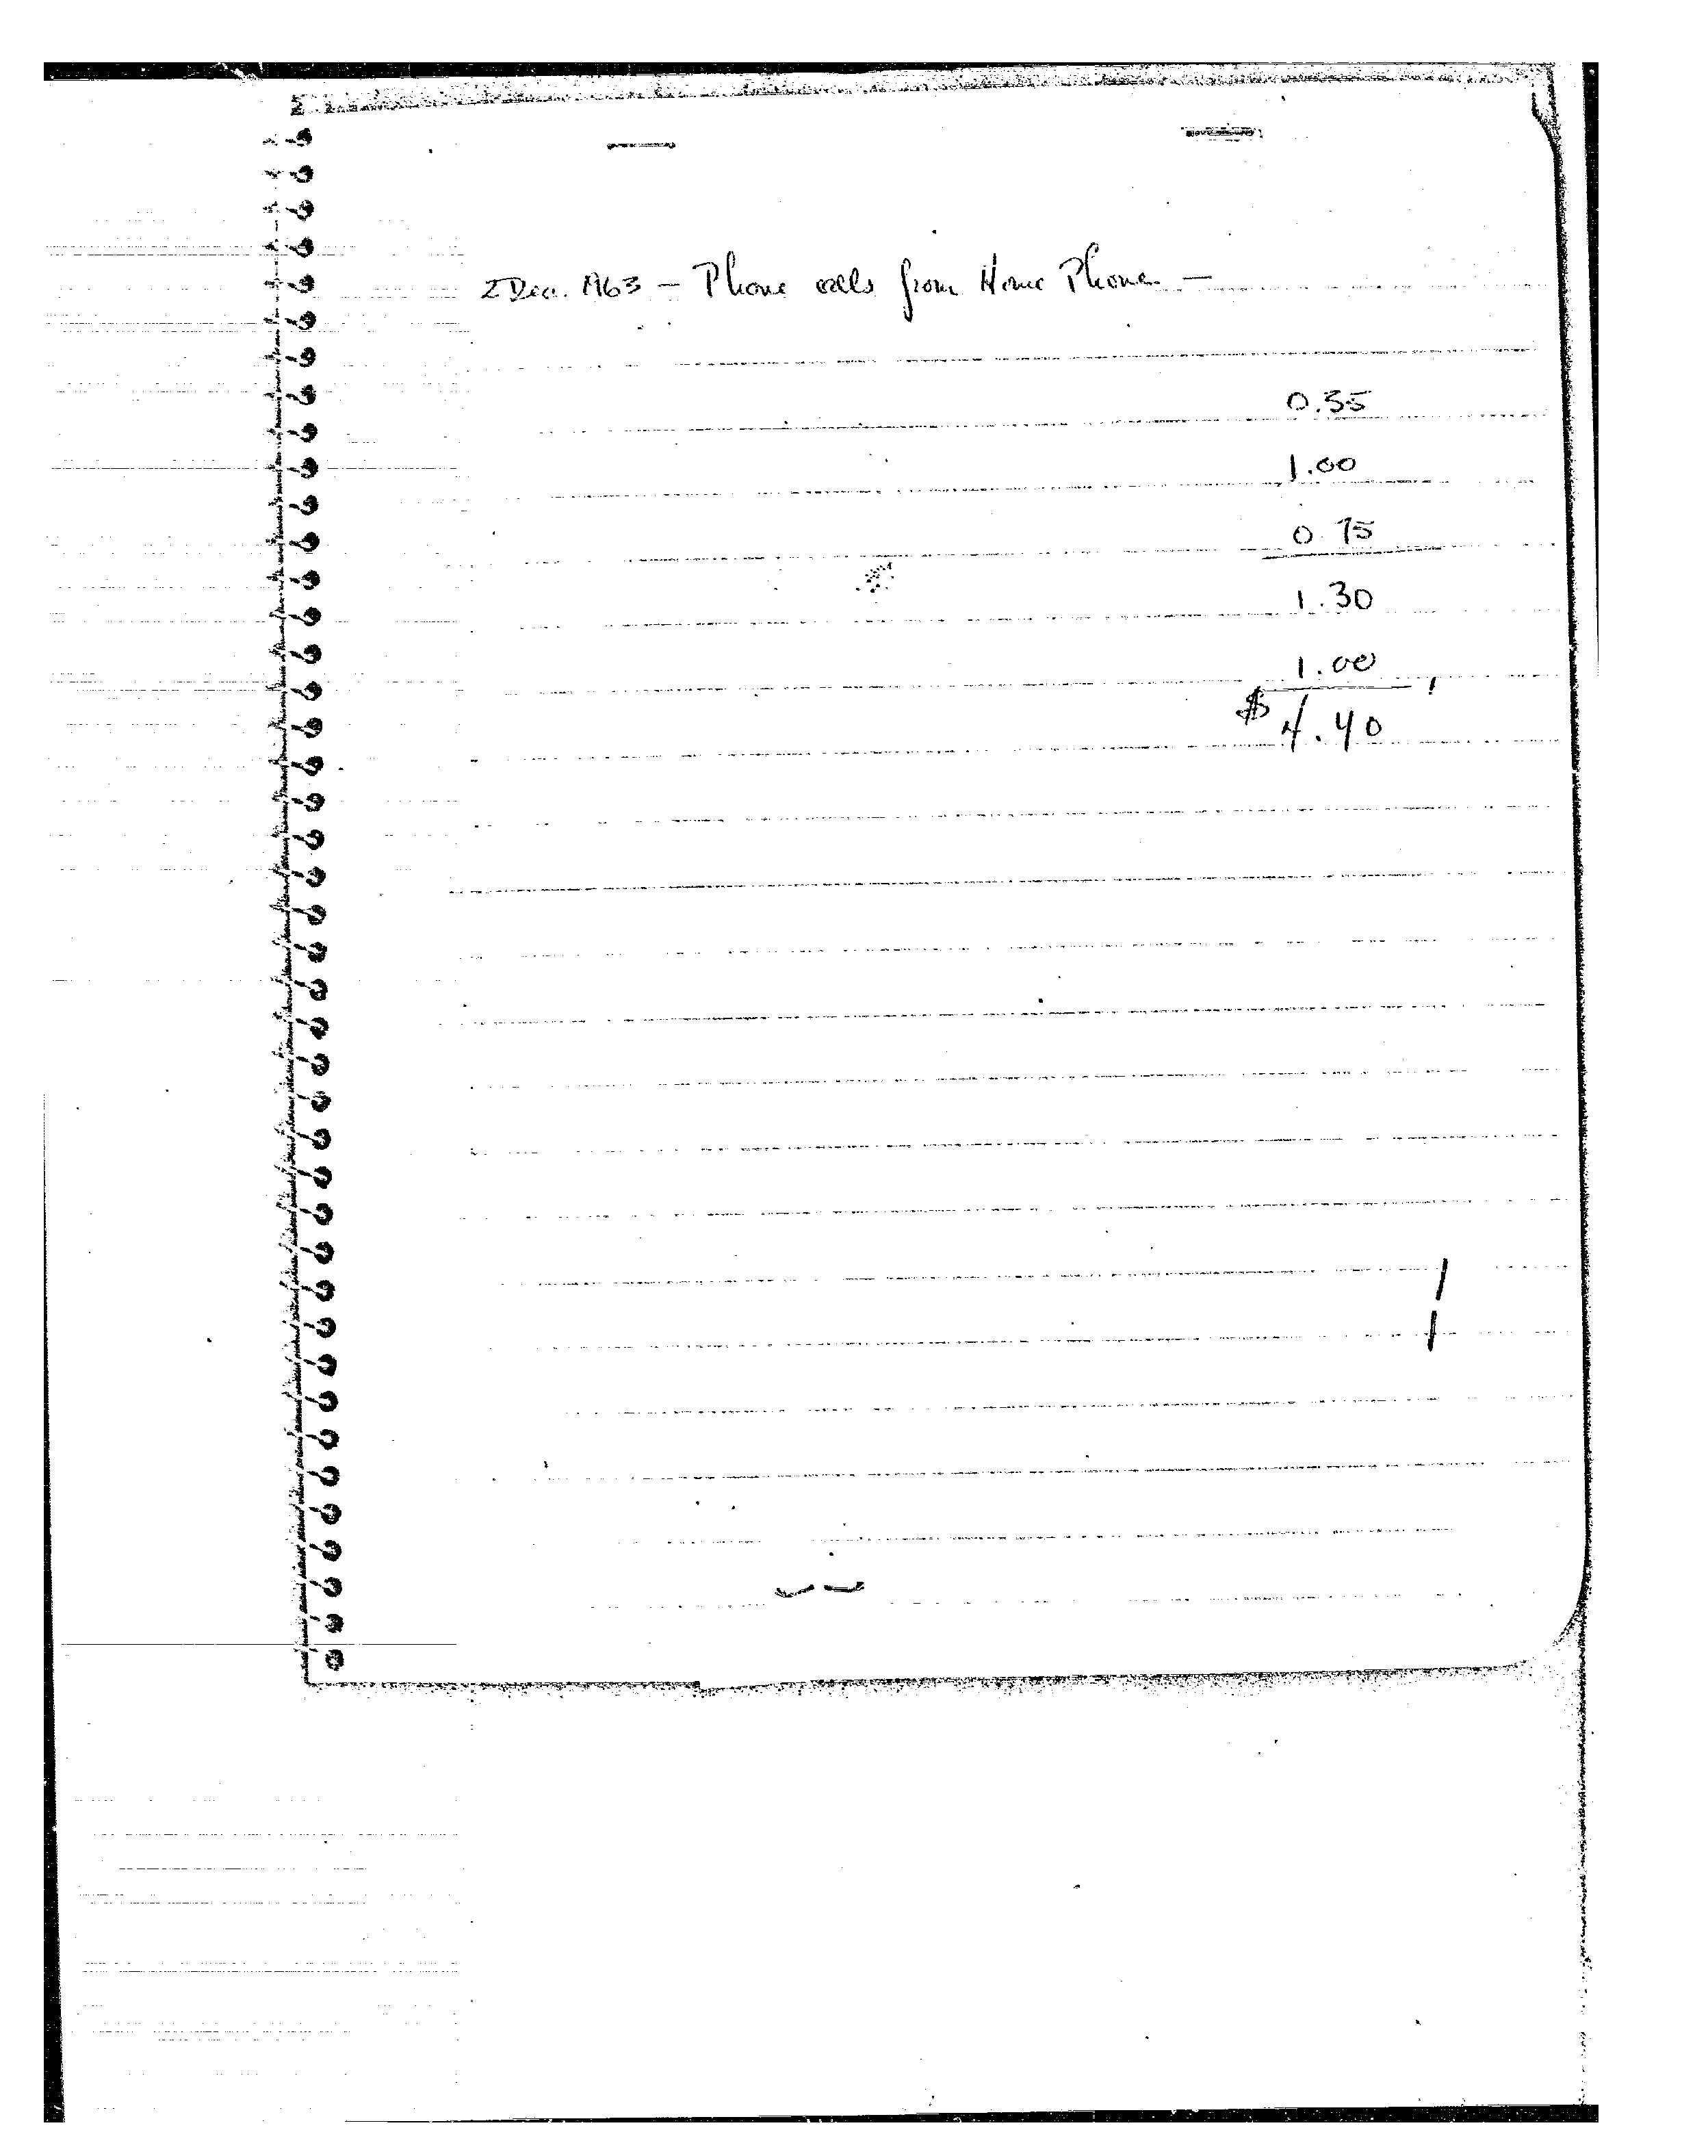 2 Dec. 1963 — Phone calls from Home Phone —
0.35
1.00
0.75
1.30
1.00
$ 4.40